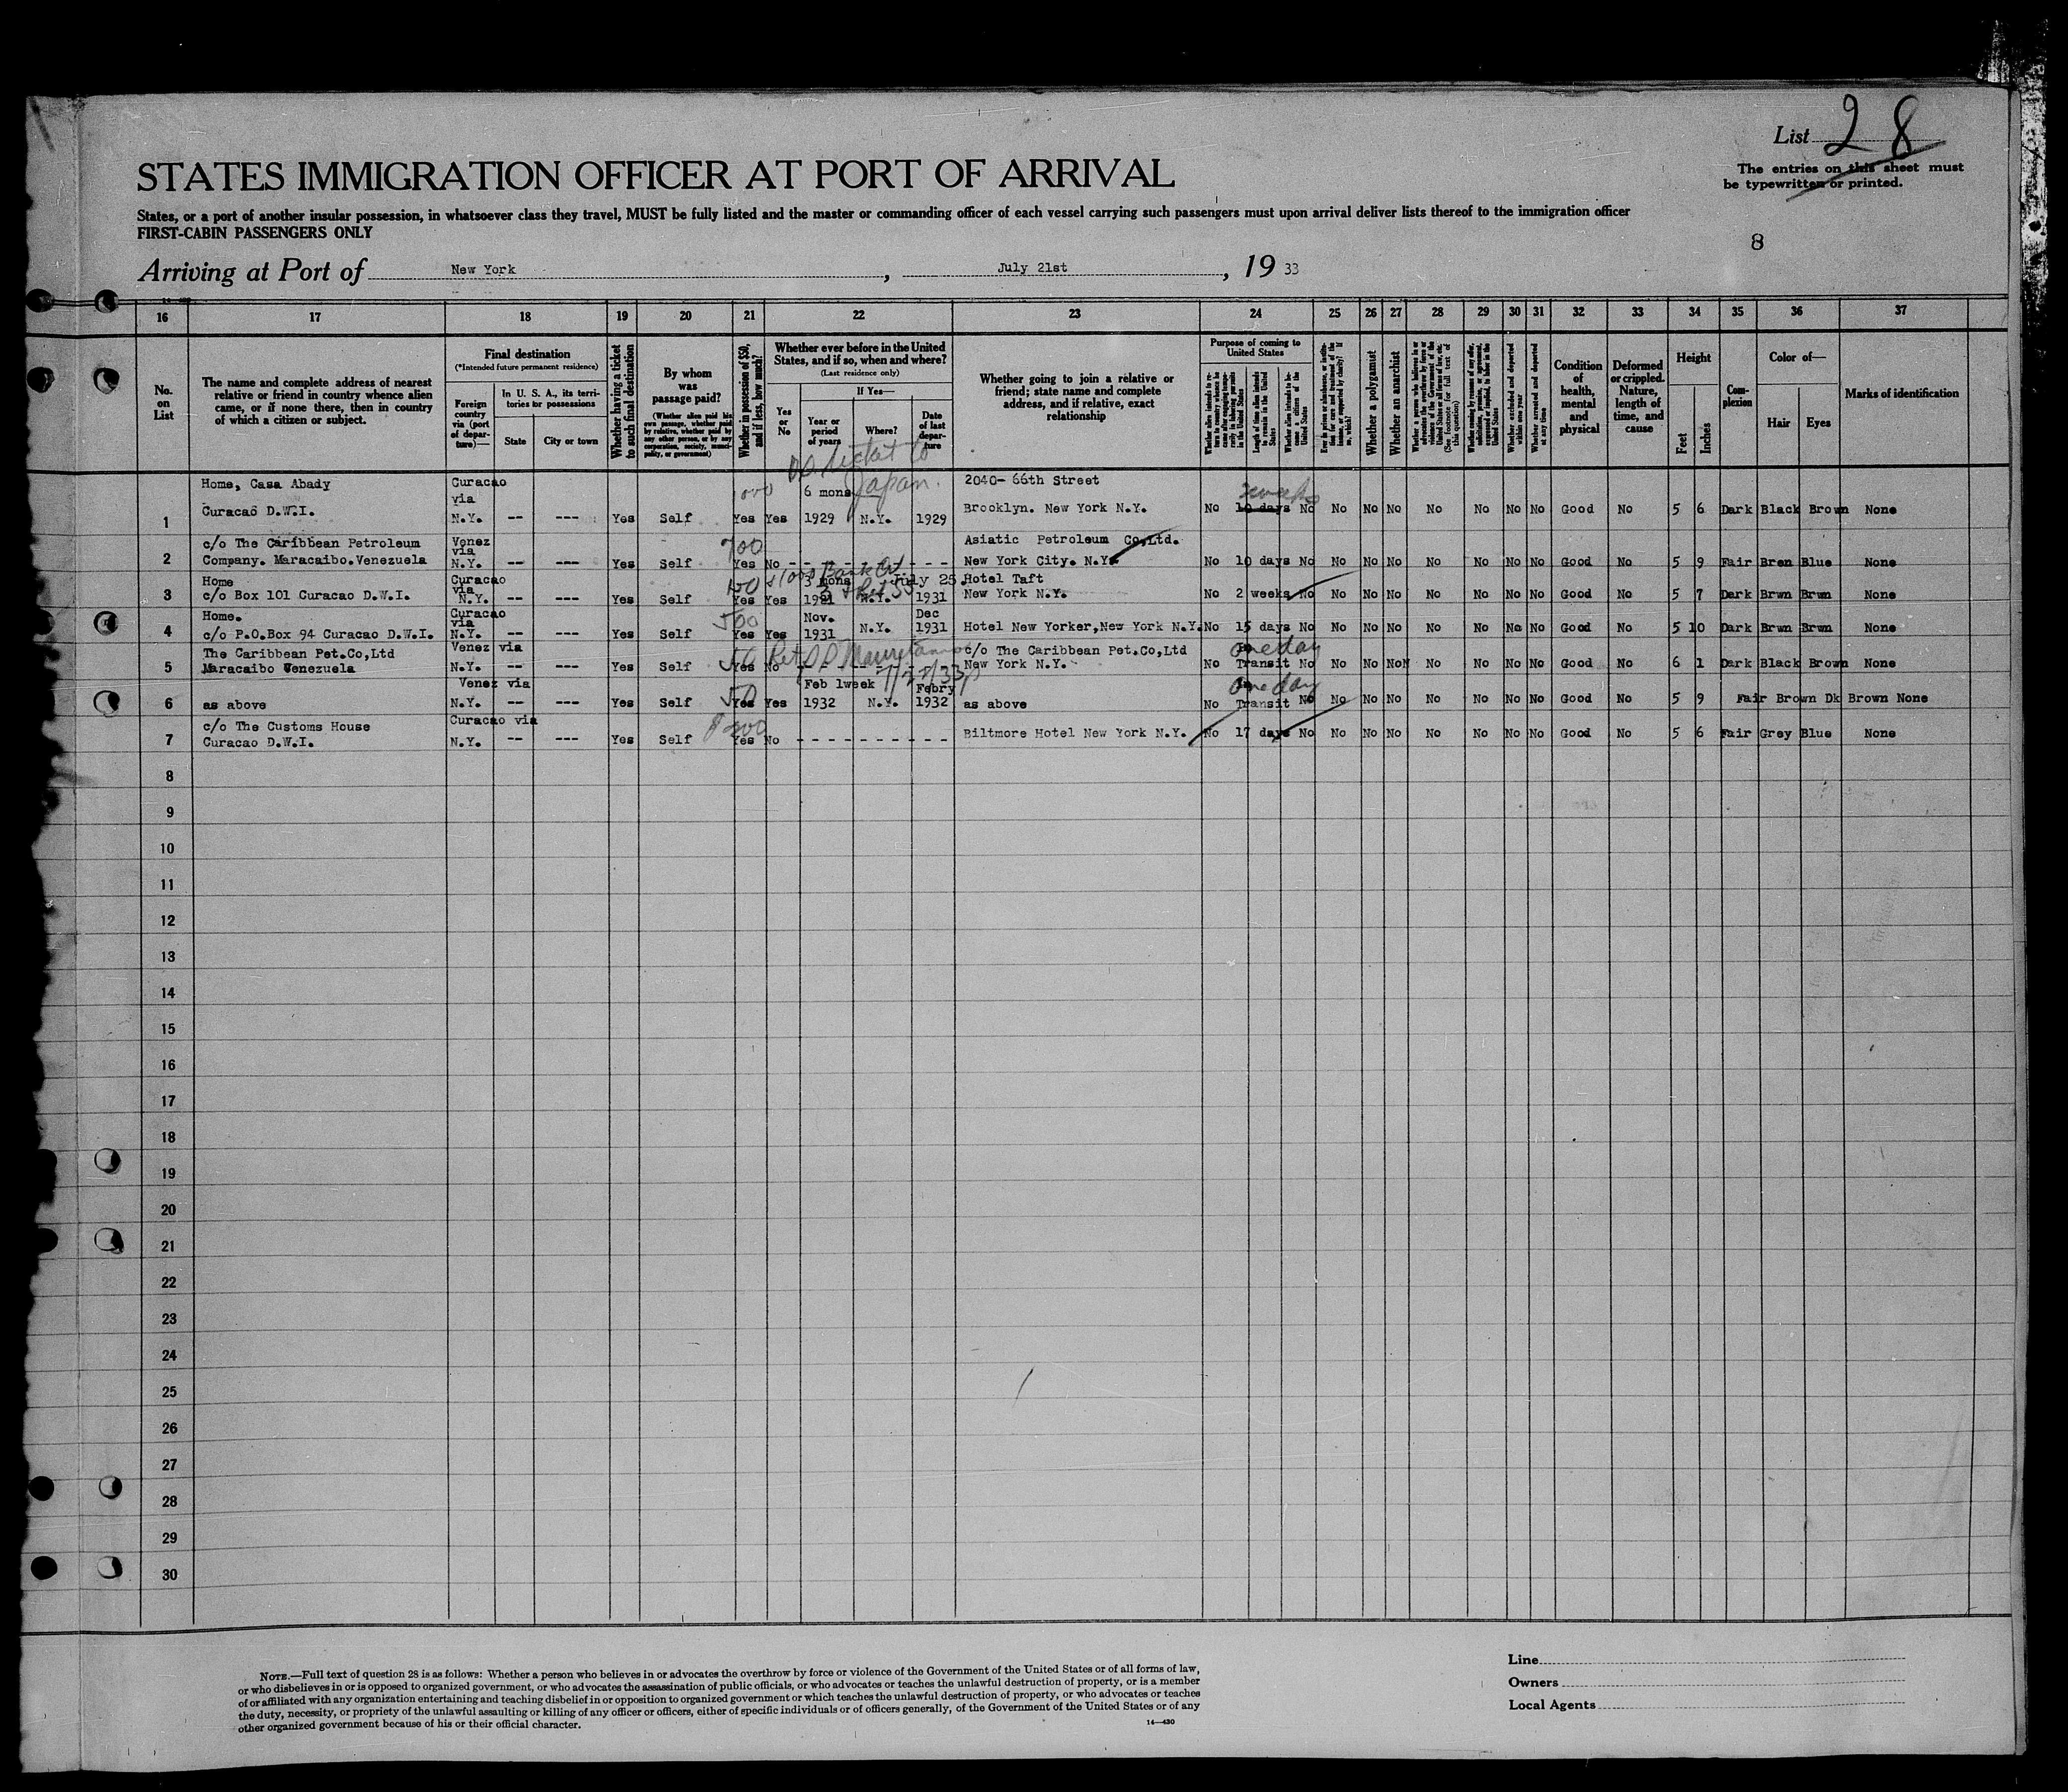 List 28
STATES IMMIGRATION OFFICER AT PORT OF ARRIVAL
The entries on this sheet must
be typewritten or printed.
States, or a port of another insular possession, in whatsoever class they travel, MUST be fully listed and the master or commanding officer of each vessel carrying such passengers must upon arrival deliver lists thereof to the immigration officer
FIRST-CABIN PASSENGERS ONLY
8
Arriving at Port of New York, July 21st, 19 33
16 17 18 19 20 21 22 23 24 25 26 27 28 29 30 31 32 33 34 35 36 37
No.
on
List
The name and complete address of nearest
relative or friend in country whence alien
came, or if none there, then in country
of which a citizen or subject.
Final destination
(*Intended future permanent residence)
Foreign
country
via (port
of depar-
ture)—
In U. S. A., its terri-
tories or possessions
State City or town
Whether having a ticket
to such final destination
By whom
was
passage paid?
(Whether alien paid his
own passage, whether paid
by relative, whether paid by
any other person, or by any
corporation, society, munici-
pality, or government)
Whether in possession of $50,
and if less, how much?
Whether ever before in the United
States, and if so, when and where?
(Last residence only)
Yes
or
No
If Yes—
Year or
period
of years
Where?
Date
of last
depar-
ture
Whether going to join a relative or
friend; state name and complete
address, and if relative, exact
relationship
Purpose of coming to
United States
Length of time alien intends
to remain in the United
States
Whether alien intends to be-
come a citizen of the
United States
Whether a polygamist
Whether an anarchist
(See footnote for full text of
this question)
Whether excluded and deported
within one year
Whether arrested and deported
at any time
Condition
of
health,
mental
and
physical
Deformed
or crippled.
Nature,
length of
time, and
cause
Height
Feet Inches
Com-
plexion
Color of—
Hair Eyes
Marks of identification
Japan.
Home, Casa Abady Curacao 1000 6 mons 2040- 66th Street
via
1 Curacao D.W.I. N.Y. -- --- Yes Self Yes Yes 1929 N.Y. 1929 Brooklyn. New York N.Y. No 10 days No No No No No No No No Good No 5 6 Dark Black Brown None
c/o The Caribbean Petroleum Venez 700 Asiatic Petroleum Co,Ltd.
via
2 Company. Maracaibo.Venezuela N.Y. -- --- Yes Self Yes No - - - - - - - - New York City. N.Y. No 10 days No No No No No No No No Good No 5 9 Fair Bren Blue None
Home Curacao 3 mons July 25. Hotel Taft
via
3 c/o Box 101 Curacao D.W.I. N.Y. Yes Self Yes Yes N.Y. 1931 New York N.Y. No 2 weeks No No No No No No No No Good No 5 7 Dark Brwn Brwn None
Home. Curacao 500 Nov. Dec
via
4 c/o P.O.Box 94 Curacao D.W.I. N.Y. -- --- Yes Self Yes Yes 1931 N.Y. 1931 Hotel New Yorker,New York N.Y. No 15 days No No No No No No No No Good No 5 10 Dark Brwn Brwn None
The Caribbean Pet.Co,Ltd Venez via 50 Mauretania 7/22/33 c/o The Caribbean Pet.Co,Ltd one day
5 Maracaibo Venezuela N.Y. -- --- Yes Self Yes No New York N.Y. No Transit No No No NoN No No No No Good No 6 1 Dark Black Brown None
Venez via 50 Feb 1week Febry one day
6 as above N.Y. -- --- Yes Self Yes Yes 1932 N.Y. 1932 as above No Transit No No No No No No No No Good No 5 9 Fair Brown Dk Brown None
c/o The Customs House Curacao via
7 Curacao D.W.I. N.Y. -- --- Yes Self Yes No - - - - - - - - - - Biltmore Hotel New York N.Y. No 17 days No No No No No No No No Good No 5 6 Fair Grey Blue None
8
9
10
11
12
13
14
15
16
17
18
19
20
21
22
23
24
25
26
27
28
29
30
NOTE.—Full text of question 28 is as follows: Whether a person who believes in or advocates the overthrow by force or violence of the Government of the United States or of all forms of law,
or who disbelieves in or is opposed to organized government, or who advocates the assassination of public officials, or who advocates or teaches the unlawful destruction of property, or is a member
of or affiliated with any organization entertaining and teaching disbelief in or opposition to organized government or which teaches the unlawful destruction of property, or who advocates or teaches
the duty, necessity, or propriety of the unlawful assaulting or killing of any officer or officers, either of specific individuals or of officers generally, of the Government of the United States or of any
other organized government because of his or their official character.
14—430
Line
Owners
Local Agents